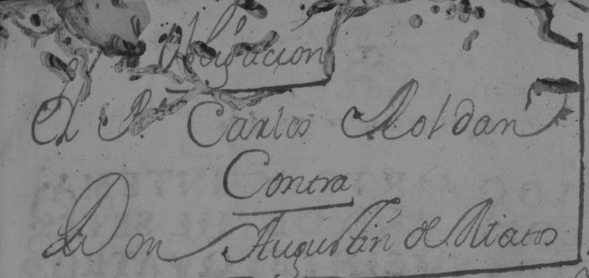 Obligacion
El Rl Carlos Roldan
Contra
Don Augustin de Riatos